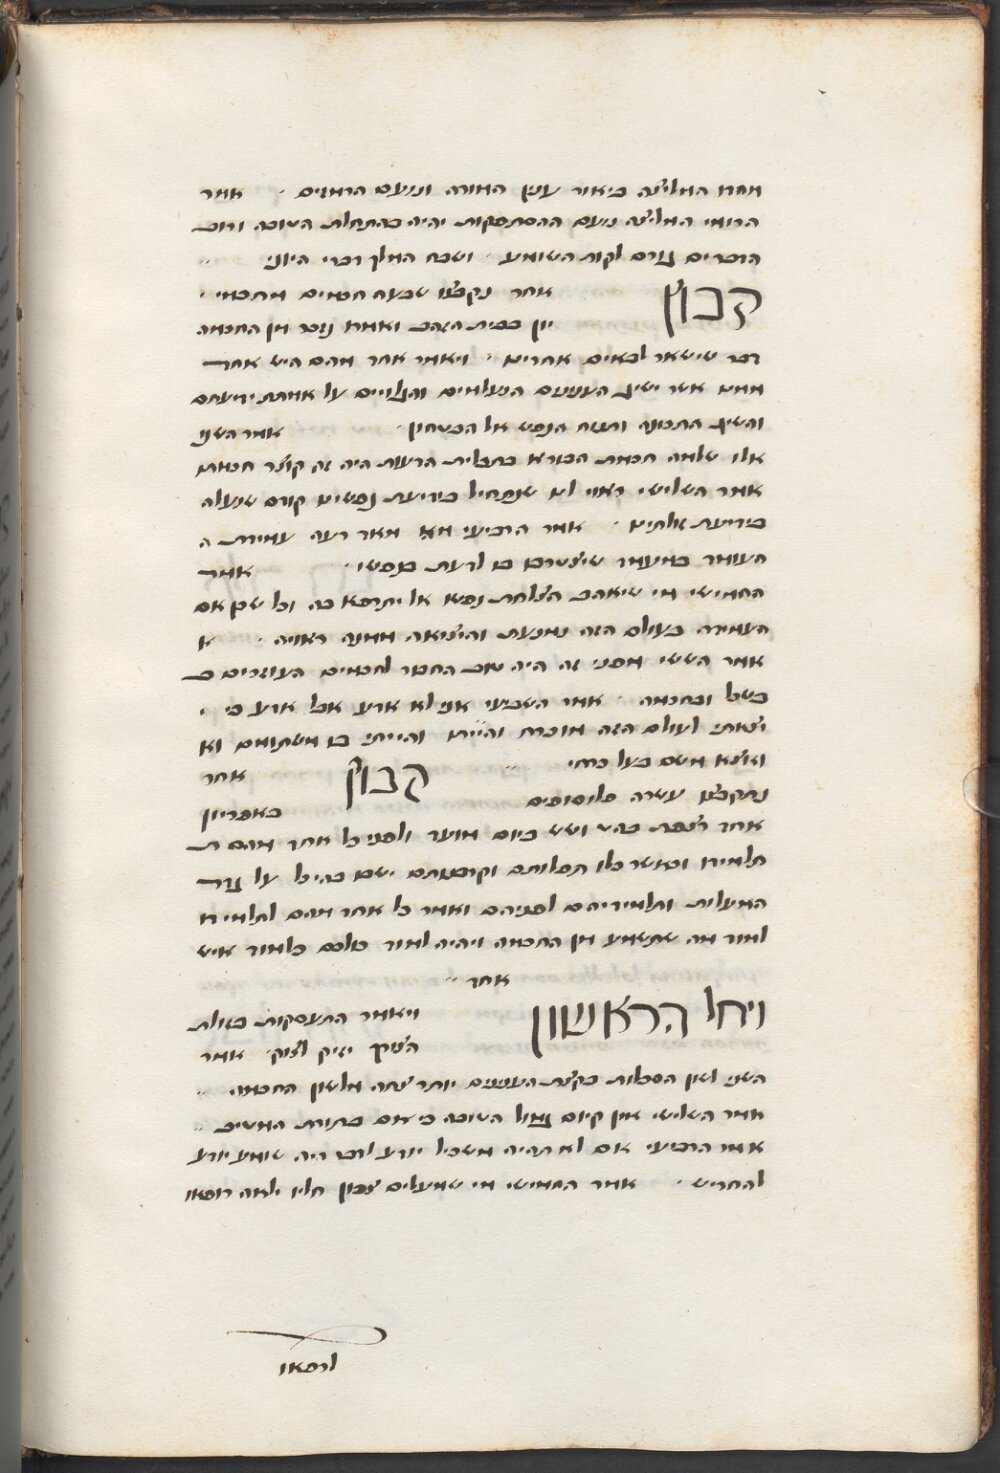 אמר המליצה ביאור ענין המורה ונועם הרמזים · אמר
הרומי המליצה נועם ההסתפקות יהיה בהתחלת השובה ורוב
הדברים גורם לקות השומע · ושבח המלך דברי היוני
קבוץ אחר נקבצו שבעה חכמים מחכמי
יון בבית הזהב ואמרו נזכר מן החכמה
דבר שישאר לבאים אחרינו · ויאמר אחד מהם היש אחד
ממנו אשר ישיג הענינים הנעלמים והגלויים על אמתת ידיעתם
והשיג התכונה ותנוח הנפש אל הבטחון · אמר השני
אלו שלמה חכמת הבורא בתכלית הדעות היה זה קוצר חכמתו
אמר השלישי ראוי לנו שנתחיל בידיעת נפשינו קודם שנעלה
בידיעת אלהינו · אמר הרביעי מאד רעה עמידת ה
העומד במעמד שיצטרך בו לדעת בנפשו · אמר
החמישי מי שיאהב הצלחת נפשו אל יתרפא בה וכל שכן אם
העמידה בעולם הזה נמנעת והיציאה ממנה ראויה · א
אמר הששי מפני זה היה טוב החבור לחכמים העוזרים ב
בשכל ובחכמה · אמר השביעי אני לא אדע אבל אדע כי
יצאתי לעולם הזה מוכרח והייתי והייתי בו משתומם וא
ואצא משם בעל כרחי
קבוץ אחר
נתקבצו עשרה פלוסופים באפריון
אחד רצפת בהט ושש ביום מועד ולפני כל אחד מהם ת
תלמידו וכאשר כלו תפלותם וקרבנותם ישבו בהיכל על גרם
המעלות ותלמידיהם לפניהם ואמר כל אחד מהם לתלמידו
למוד מה שתשמע מן החכמה ויהיה למוד כולכם כלמוד איש
אחד
ויחל הראשון ויאמר התעסקות בזולת
הצורך יזיק לצורך אמר
השני לשון הסכלות בקצת הענינים יותר צחה מלשון החכמה
אמר השלישי אין קיום גמול השובה כי אם בתורת המשיב
אמר הרביעי אם לא תהיה משכיל יודע לדבר היה שומע יודע
להחריש · אמר החמישי מי שמעלים צפון חליו ילאה רופאו
לרפאו